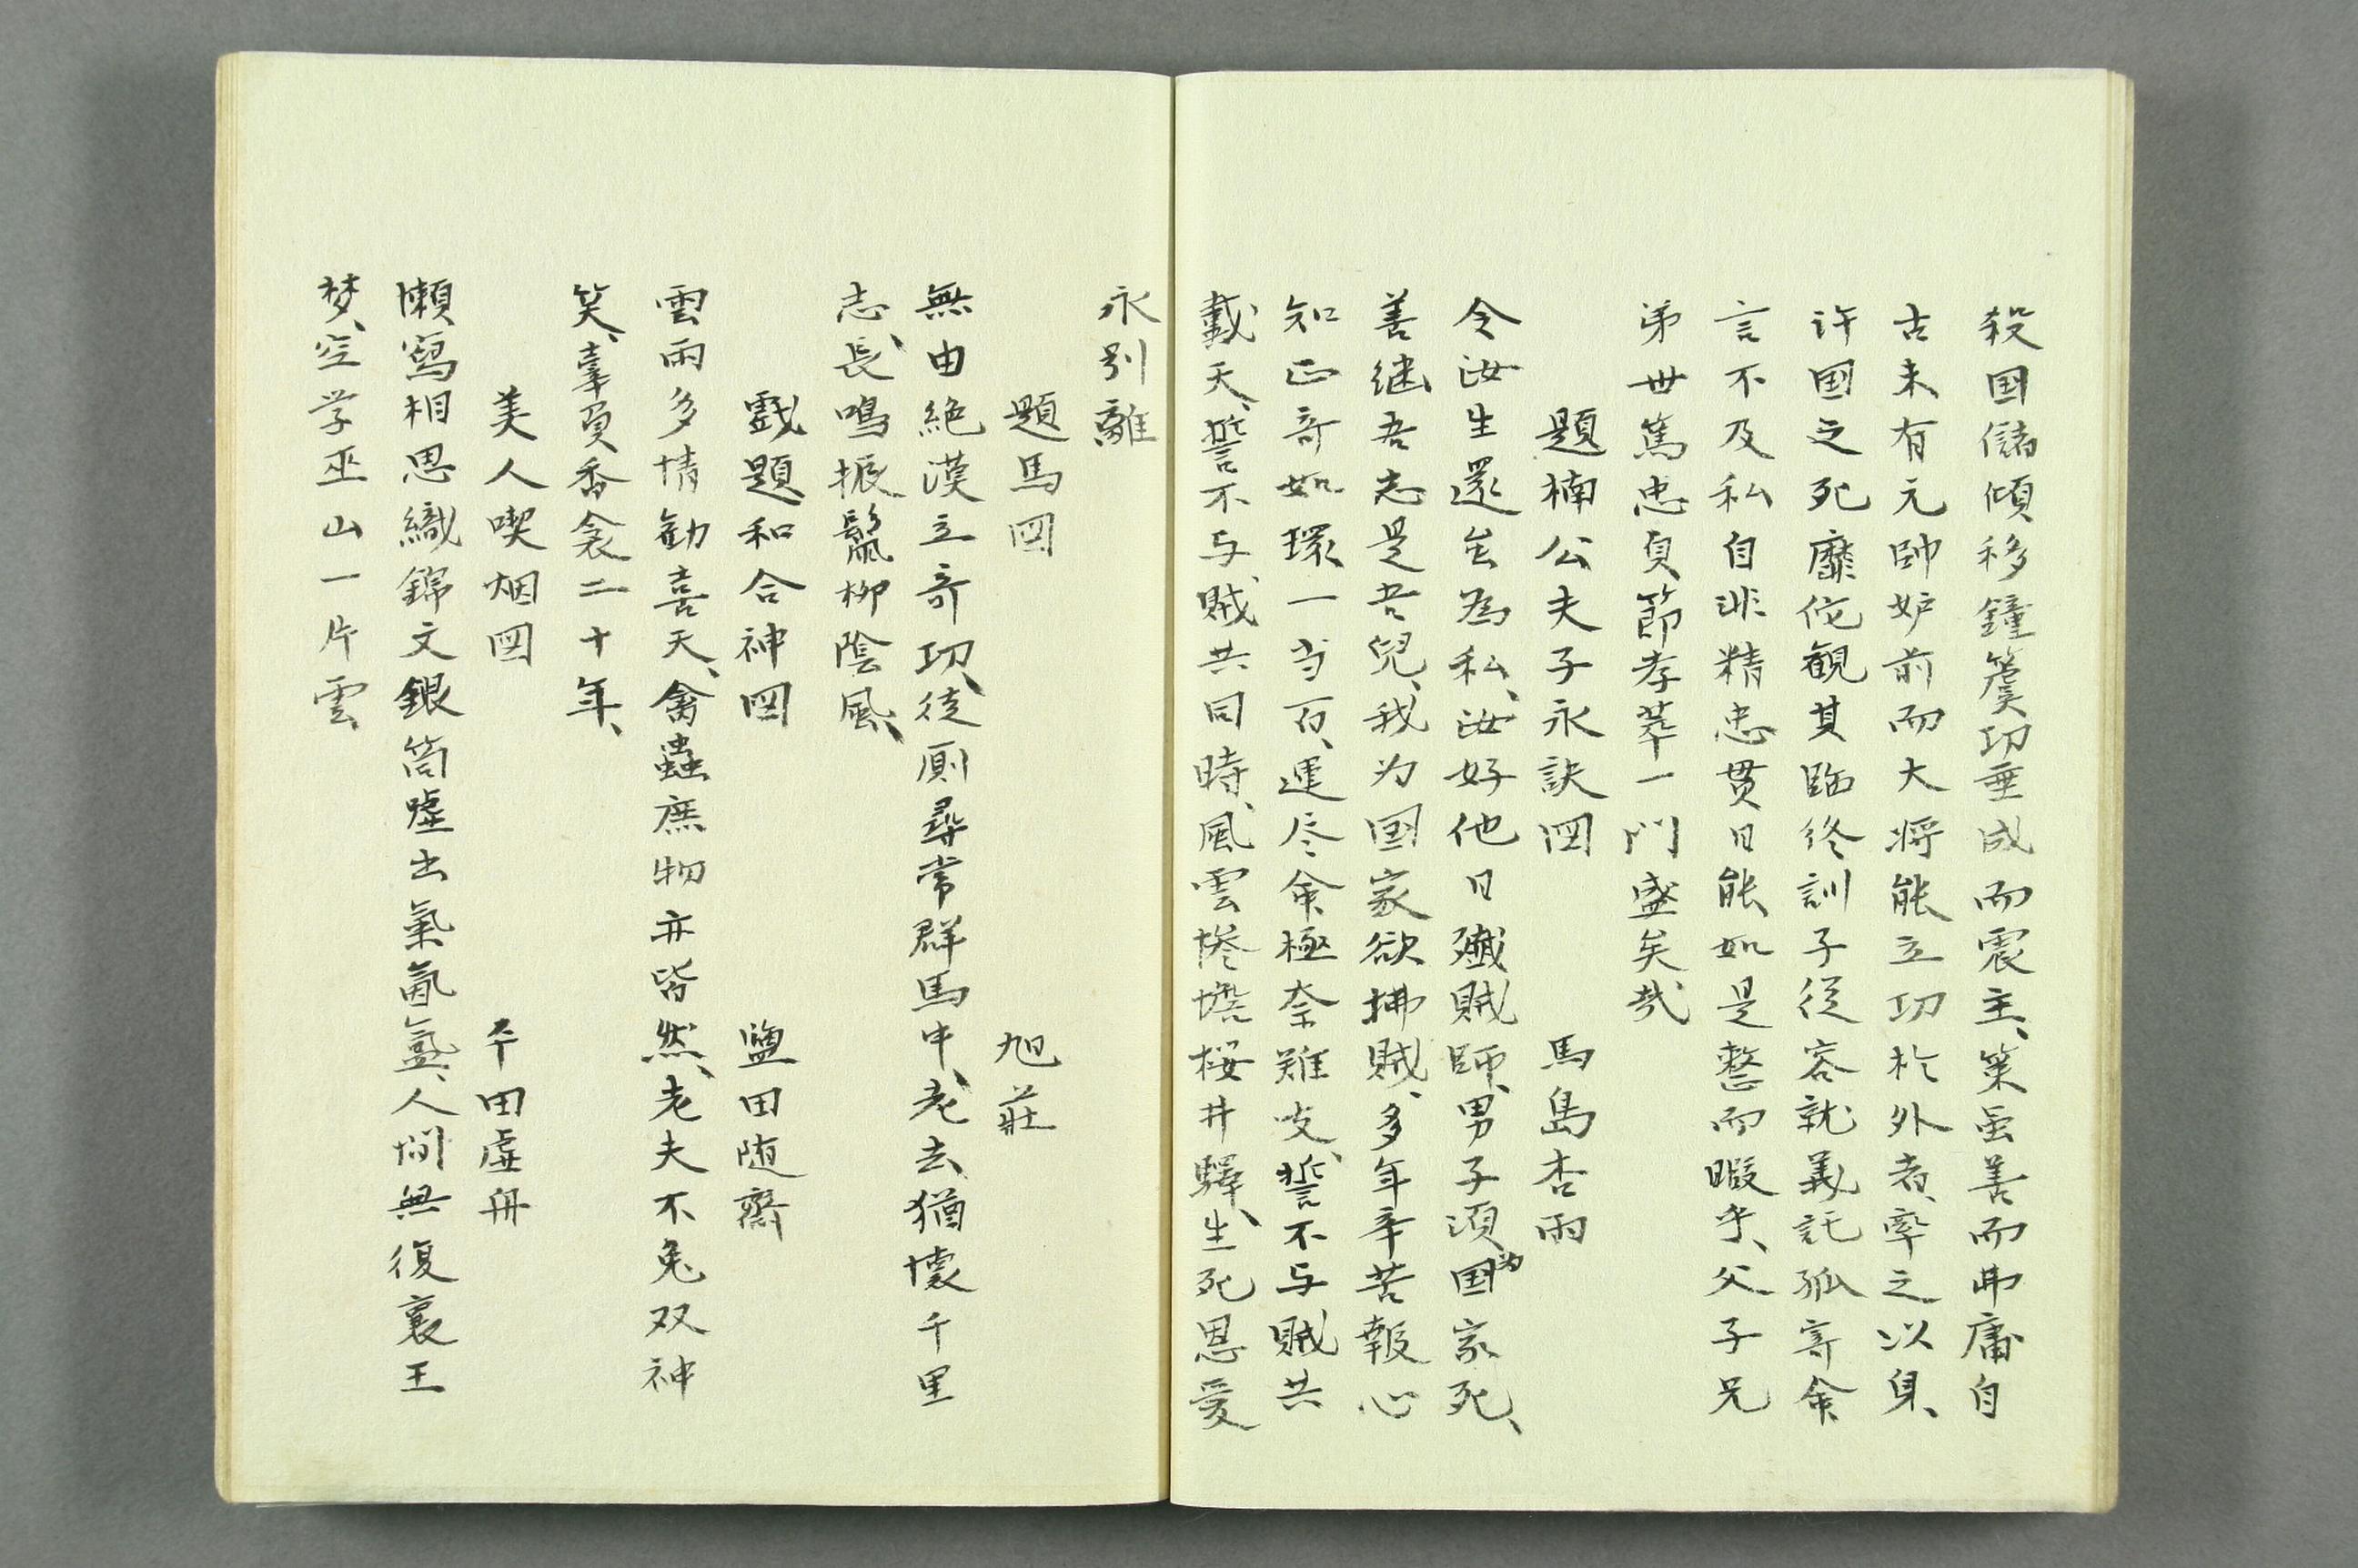 殺国儲傾移鐘簴功垂成而震主、策虽善而毋庸自
古未有元帥妒前而大将能立功於外者、率之以身、
許国之死靡佗観其臨終訓子従容就義託孤寄命
言不及私自非精忠贯日能如是整而暇乎、父子兄
弟世篤忠貞節孝萃一門盛矣哉
題楠公夫子永訣図　馬島杏雨
令汝生還豈為私、汝好他日殲賊師、男子須为国家死、
善継吾志是吾児、我为国家欲掃賊、多年辛苦報心
知正奇如環一当百、運尽命極奈難支、誓不与賊共
戴天、誓不与賊共同時、風雲惨憺桜井驛、生死恩愛
永別離
題馬図　旭荘
無由絶漠立奇功、徒厠尋常群馬中、老去猶懐千里
志、長鳴振鬣柳陰風、
戯題和合神図　盬田随齋
雲雨多情勧喜天、禽蟲庶物亦皆然、老夫不免双神
笑、辜負香衾二十年、
美人喫烟図　牟田虚舟
懶寫相思織錦文銀筒嘘出氣氤氳、人間無復襄王
梦、空学巫山一片雲、